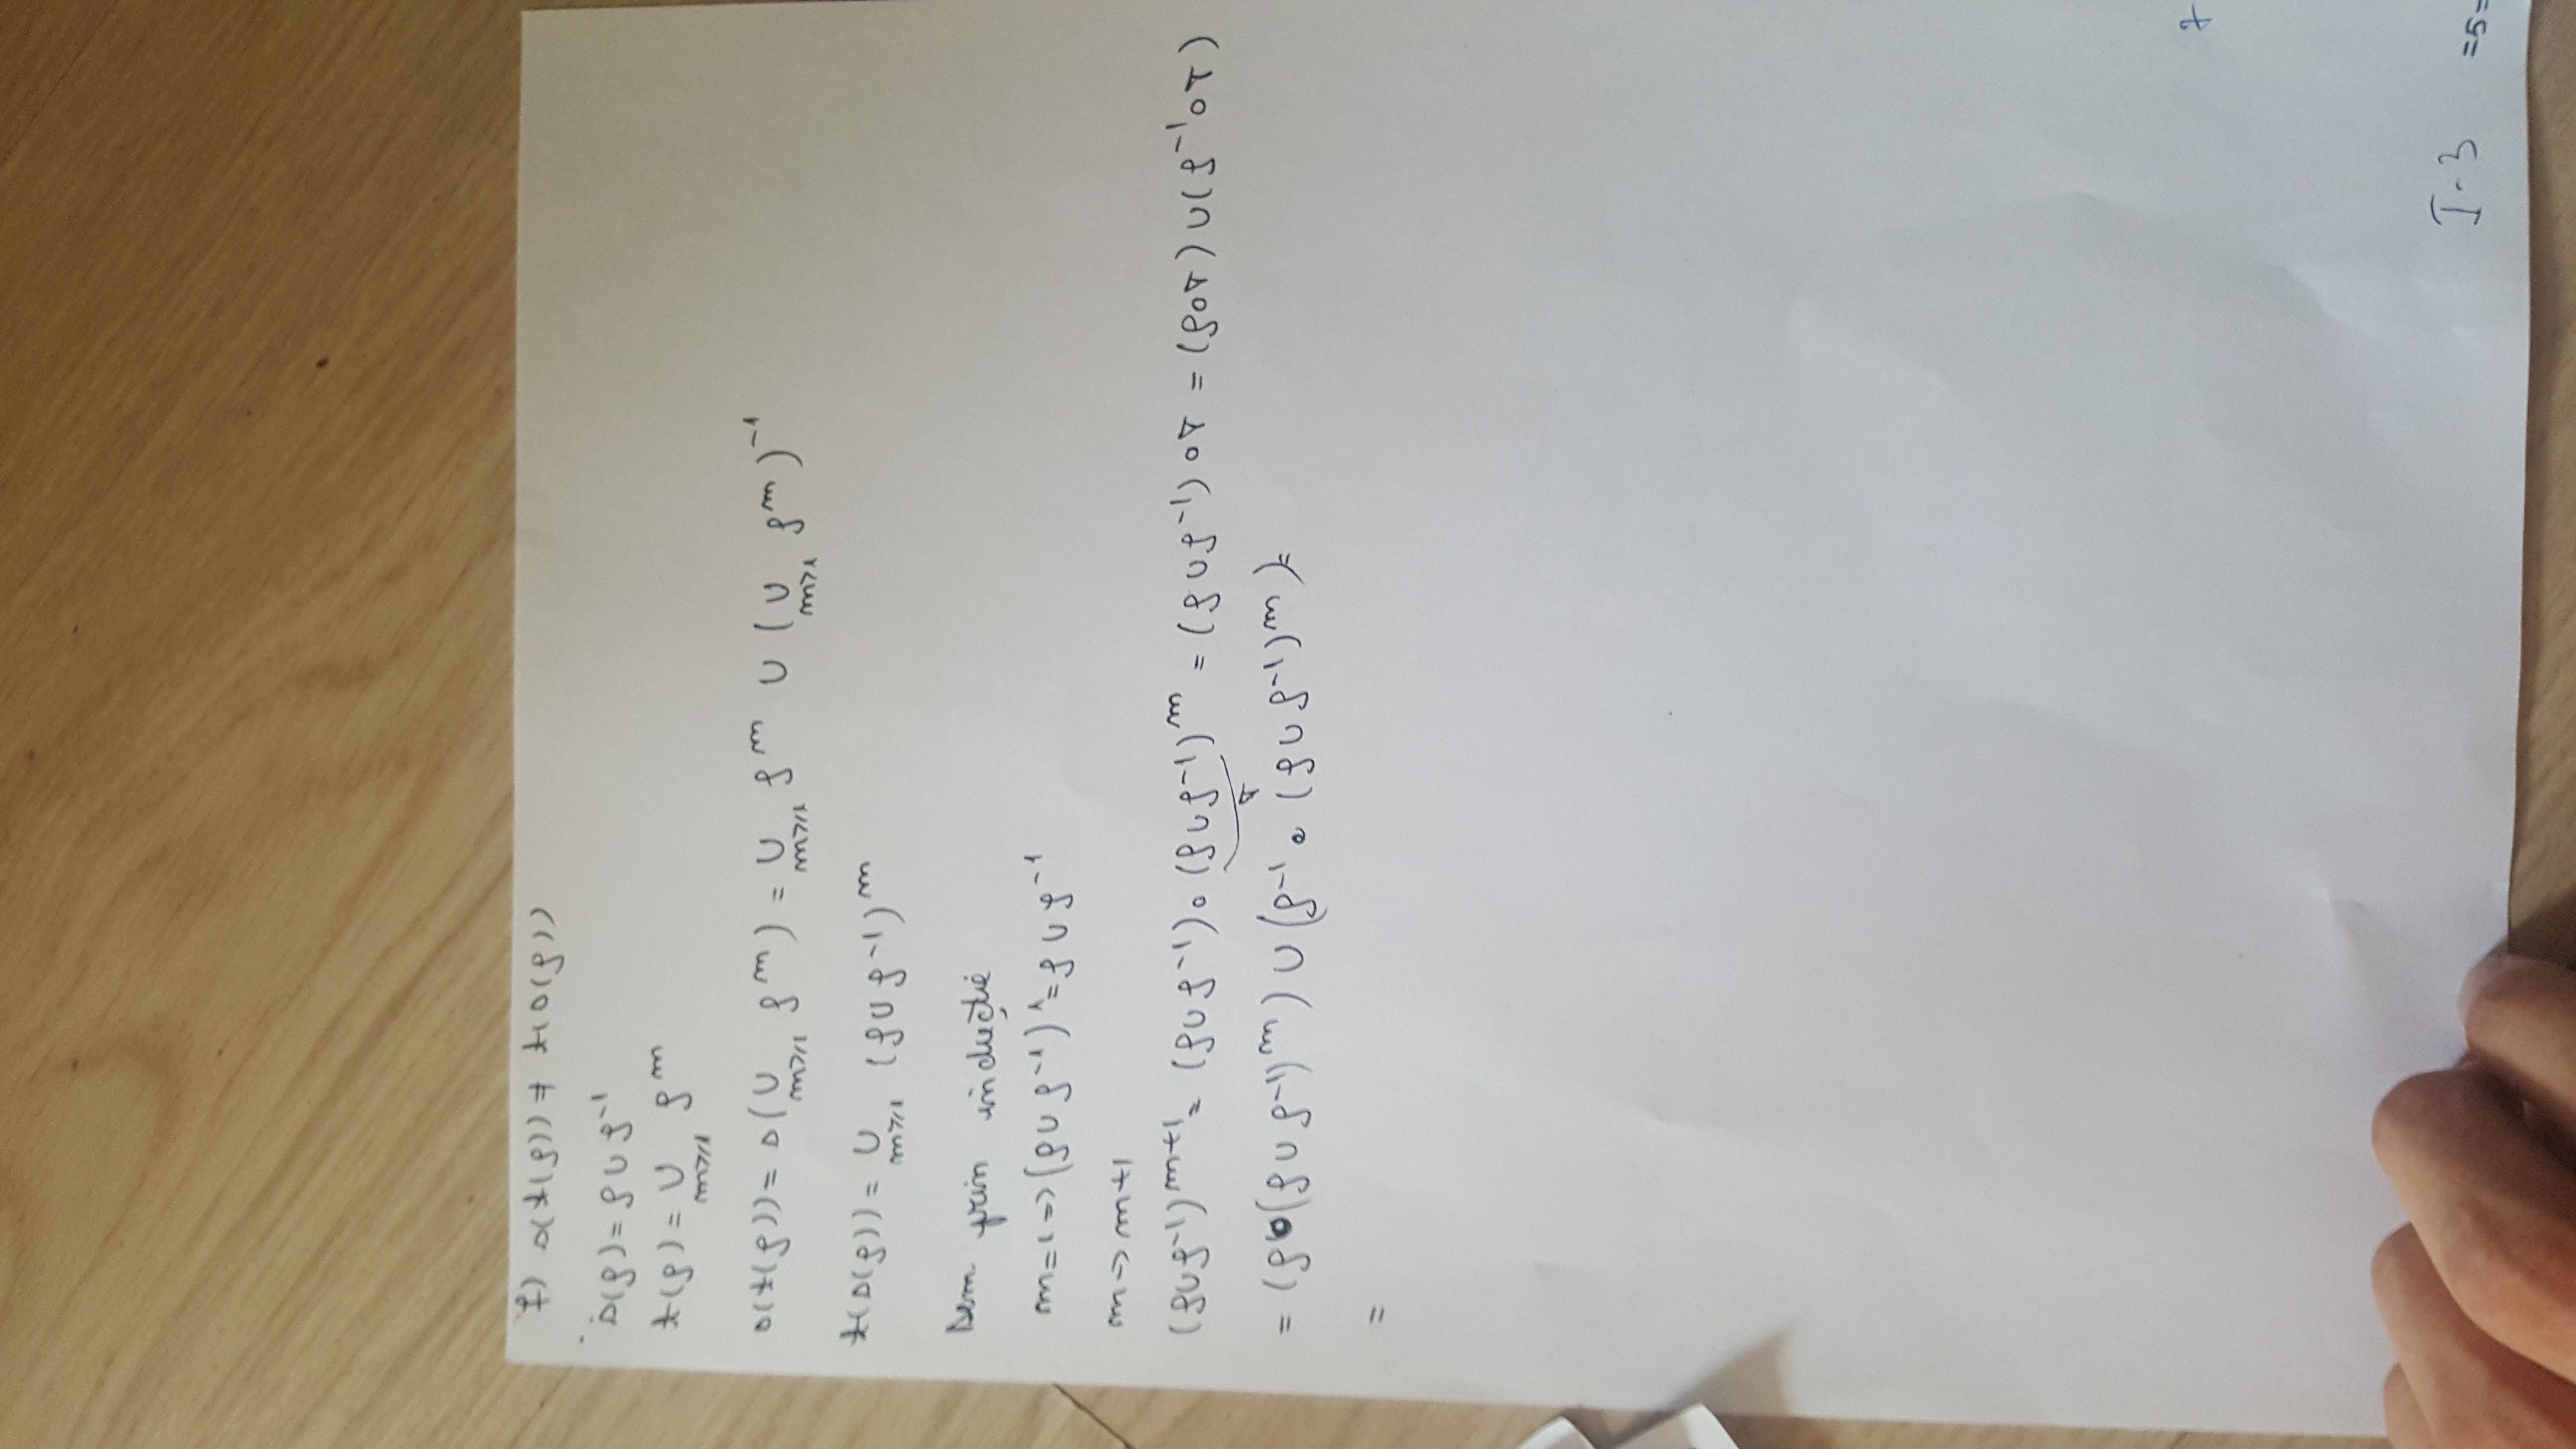 7) s(t(ρ)) ≠ t(s(ρ))
s(ρ) = ρ ∪ ρ⁻¹
t(ρ) = ∪_{m≥1} ρ^m
s(t(ρ)) = s(∪_{m≥1} ρ^m) = ∪_{m≥1} ρ^m ∪ (∪_{m≥1} ρ^m)⁻¹
t(s(ρ)) = ∪_{m≥1} (ρ ∪ ρ⁻¹)^m
Dem. prin inducție
m=1 => (ρ ∪ ρ⁻¹)¹ = ρ ∪ ρ⁻¹
m -> m+1
(ρ∪ρ⁻¹)^{m+1} = (ρ∪ρ⁻¹)∘(ρ∪ρ⁻¹)^m = (ρ∪ρ⁻¹)∘τ = (ρ∘τ) ∪ (ρ⁻¹∘τ)
τ
= (ρ∘(ρ∪ρ⁻¹)^m) ∪ (ρ⁻¹∘(ρ∪ρ⁻¹)^m) =
=
7
I-3 =5=